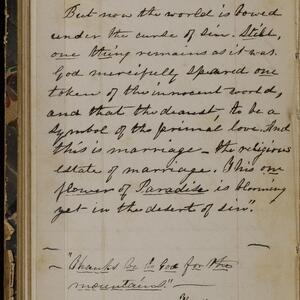 But now the world is bowed
under the curse of sin. Still,
one thing remains as it was.
God mercifully speared one
token of the innocent world,
and that the dearest, to be a
symbol of the primal love. And
this is marriage – the religious
estate of marriage. This one
flower of Paradise is blooming
yet in the desert of sin".
"Thanks be to God for the
mountains." –